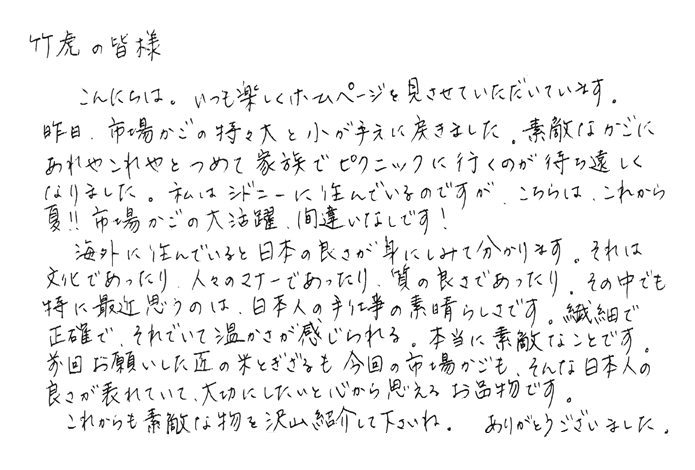 竹虎の皆様
こんにちは。いつも楽しくホームページを見させていただいています。
昨日、市場かごの特々大と小が手元に戻きました。素敵なかごに
あれやこれやとつめて家族でピクニックに行くのが待ち遠しく
なりました。私はシドニーに住んでいるのですが、こちらは、これから
夏!!市場かごの大活躍、間違いなしです!
海外に住んでいると日本の良さが身にしみて分かります。それは
文化であったり、人々のマナーであったり、質の良さであったり。その中でも
特に最近思うのは、日本人の手仕事の素晴らしさです。繊細で
正確で、それでいて温かさが感じられる。本当に素敵なことです。
前回お願いした匠の米とぎざるも今回の市場かごも、そんな日本人の
良さが表れていて、大切にしたいと心から思えるお品物です。
これからも素敵な物を沢山紹介して下さいね。 ありがとうございました。